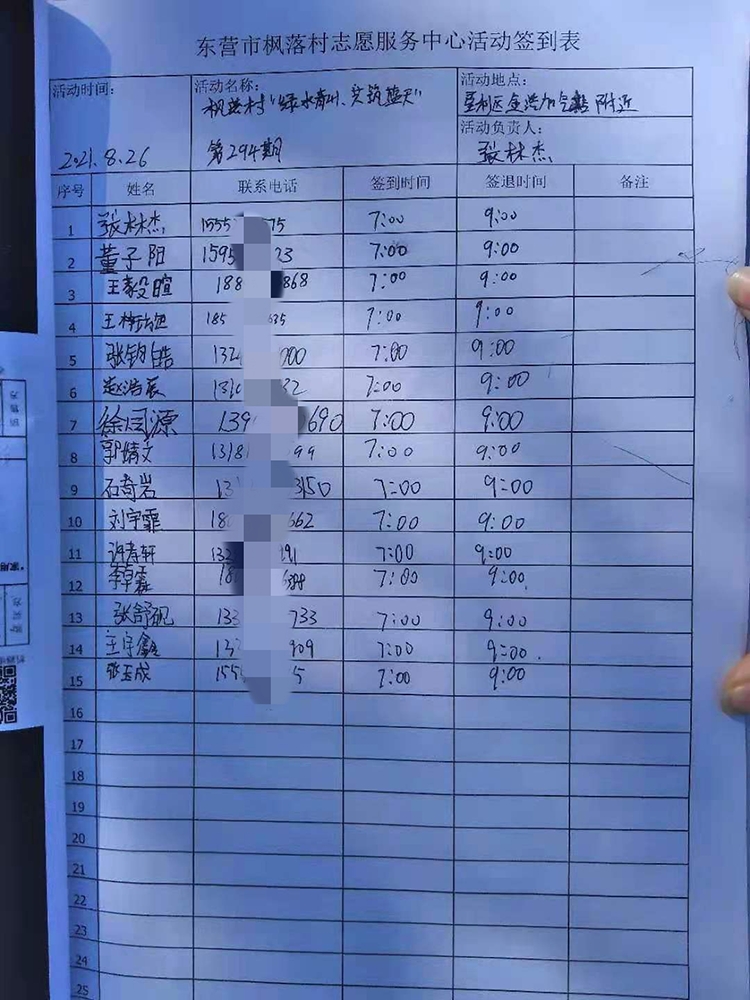 东营市枫落村志愿服务中心活动签到表
活动时间: 活动名称: 活动地点:
枫落村"绿水青山、共筑蓝天" 垦利区 加气站附近
活动负责人:
2021.8.26 第294期 张林杰
序号 姓名 联系电话 签到时间 签退时间 备注
1 张林杰 1555 75 7:00 9:00
2 董子阳 1595 23 7:00 9:00
3 王毅暄 188 868 7:00 9:00
4 王 185 635 7:00 9:00
5 张钧皓 132 000 7:00 9:00
6 赵浩辰 131 32 7:00 9:00
7 徐 源 139 690 7:00 9:00
8 郭婧文 1318 99 7:00 9:00
9 石奇岩 13 3150 7:00 9:00
10 刘宇霏 18 662 7:00 9:00
11 许寿轩 132 191 7:00 9:00
12 李卓霖 18 7:00 9:00
13 张舒砚 133 733 7:00 9:00
14 王宇鑫 13 909 7:00 9:00
15 张玉成 155 5 7:00 9:00
16
17
18
19
20
21
22
23
24
25